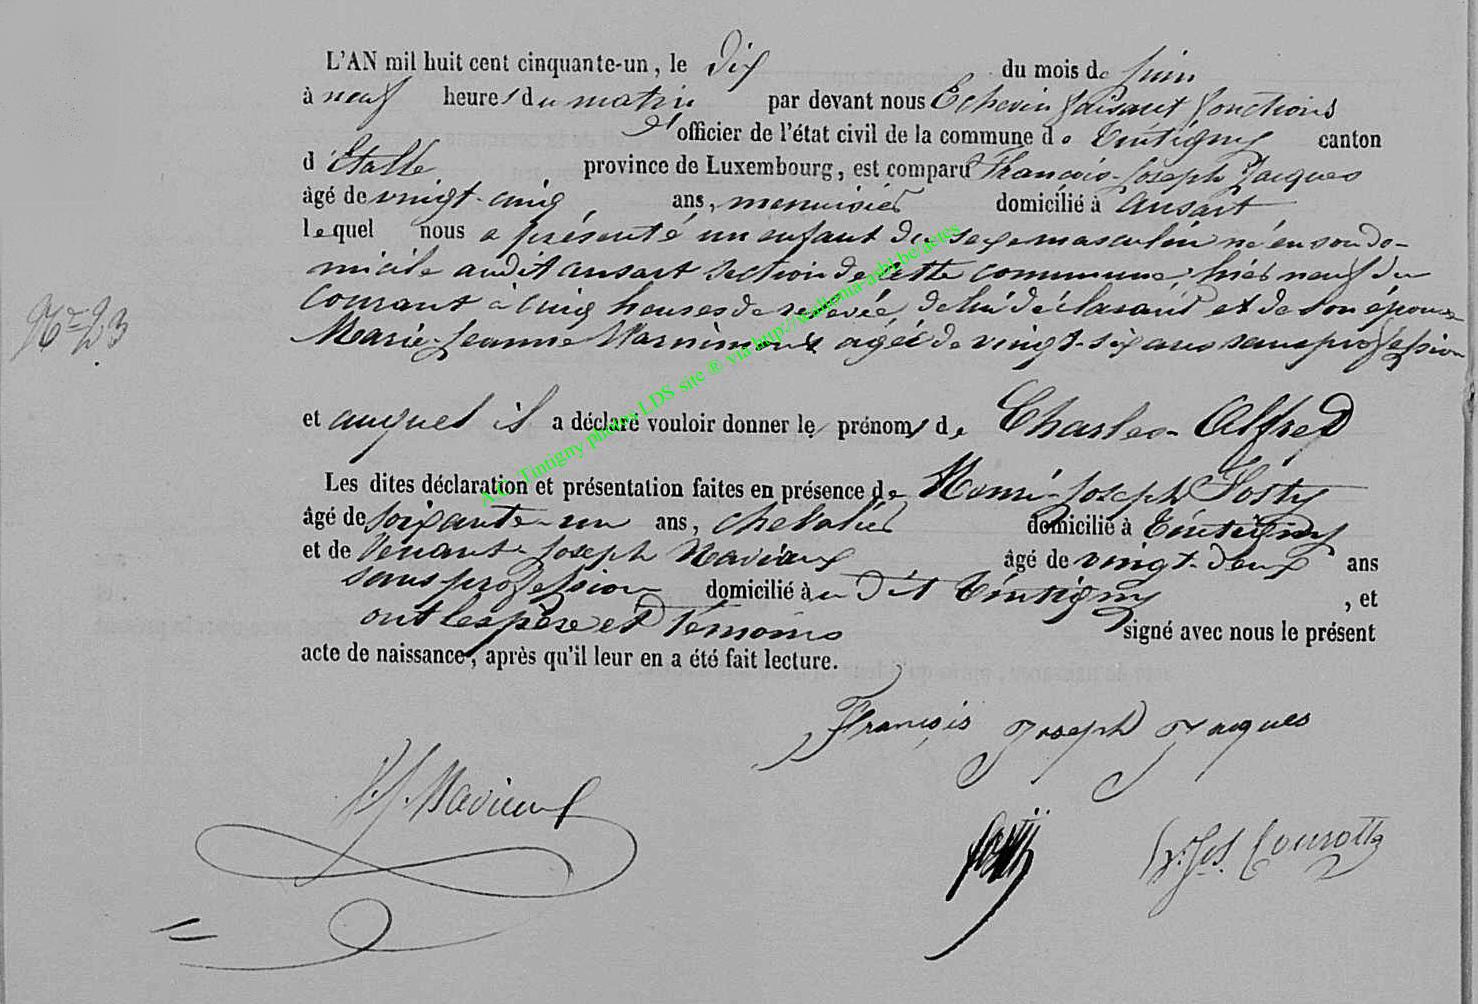 L'AN mil huit cent cinquante-un, le Dix du mois de Juin
à neuf heures du matin par devant nous Echevin faisant fonctions
d'officier de l'état civil de la commune de Tintigny canton
d'Etalle province de Luxembourg, est comparu François-Joseph Jacques
âgé de vingt-cinq ans, menuisier domicilié à Ansart
lequel nous a présenté un enfant du sexe masculin né en son do-
micile audit ansart section de cette commune, hier neuf du
N° 23
courant à cinq heures de relevée, de lui déclarant et de son épouse
Marie-Jeanne Warnimont âgée de vingt-six ans sans profession
et auquel il a déclaré vouloir donner les prénoms de Charles-Alfred
Les dites déclaration et présentation faites en présence de Henri-Joseph Sosty
âgé de soixante-un ans, chevalier domicilié à Tintigny
et de Venant-Joseph Naviaux âgé de vingt-deux ans
sans profession domicilié au Dit Tintigny, et
ont les père et Témoins signé avec nous le présent
acte de naissance, après qu'il leur en a été fait lecture.
François Joseph Jacques
V. J. Naviaux
Sosty
A.C. Tintigny photos LDS site ® via http://waltoma-asbl.be/actes